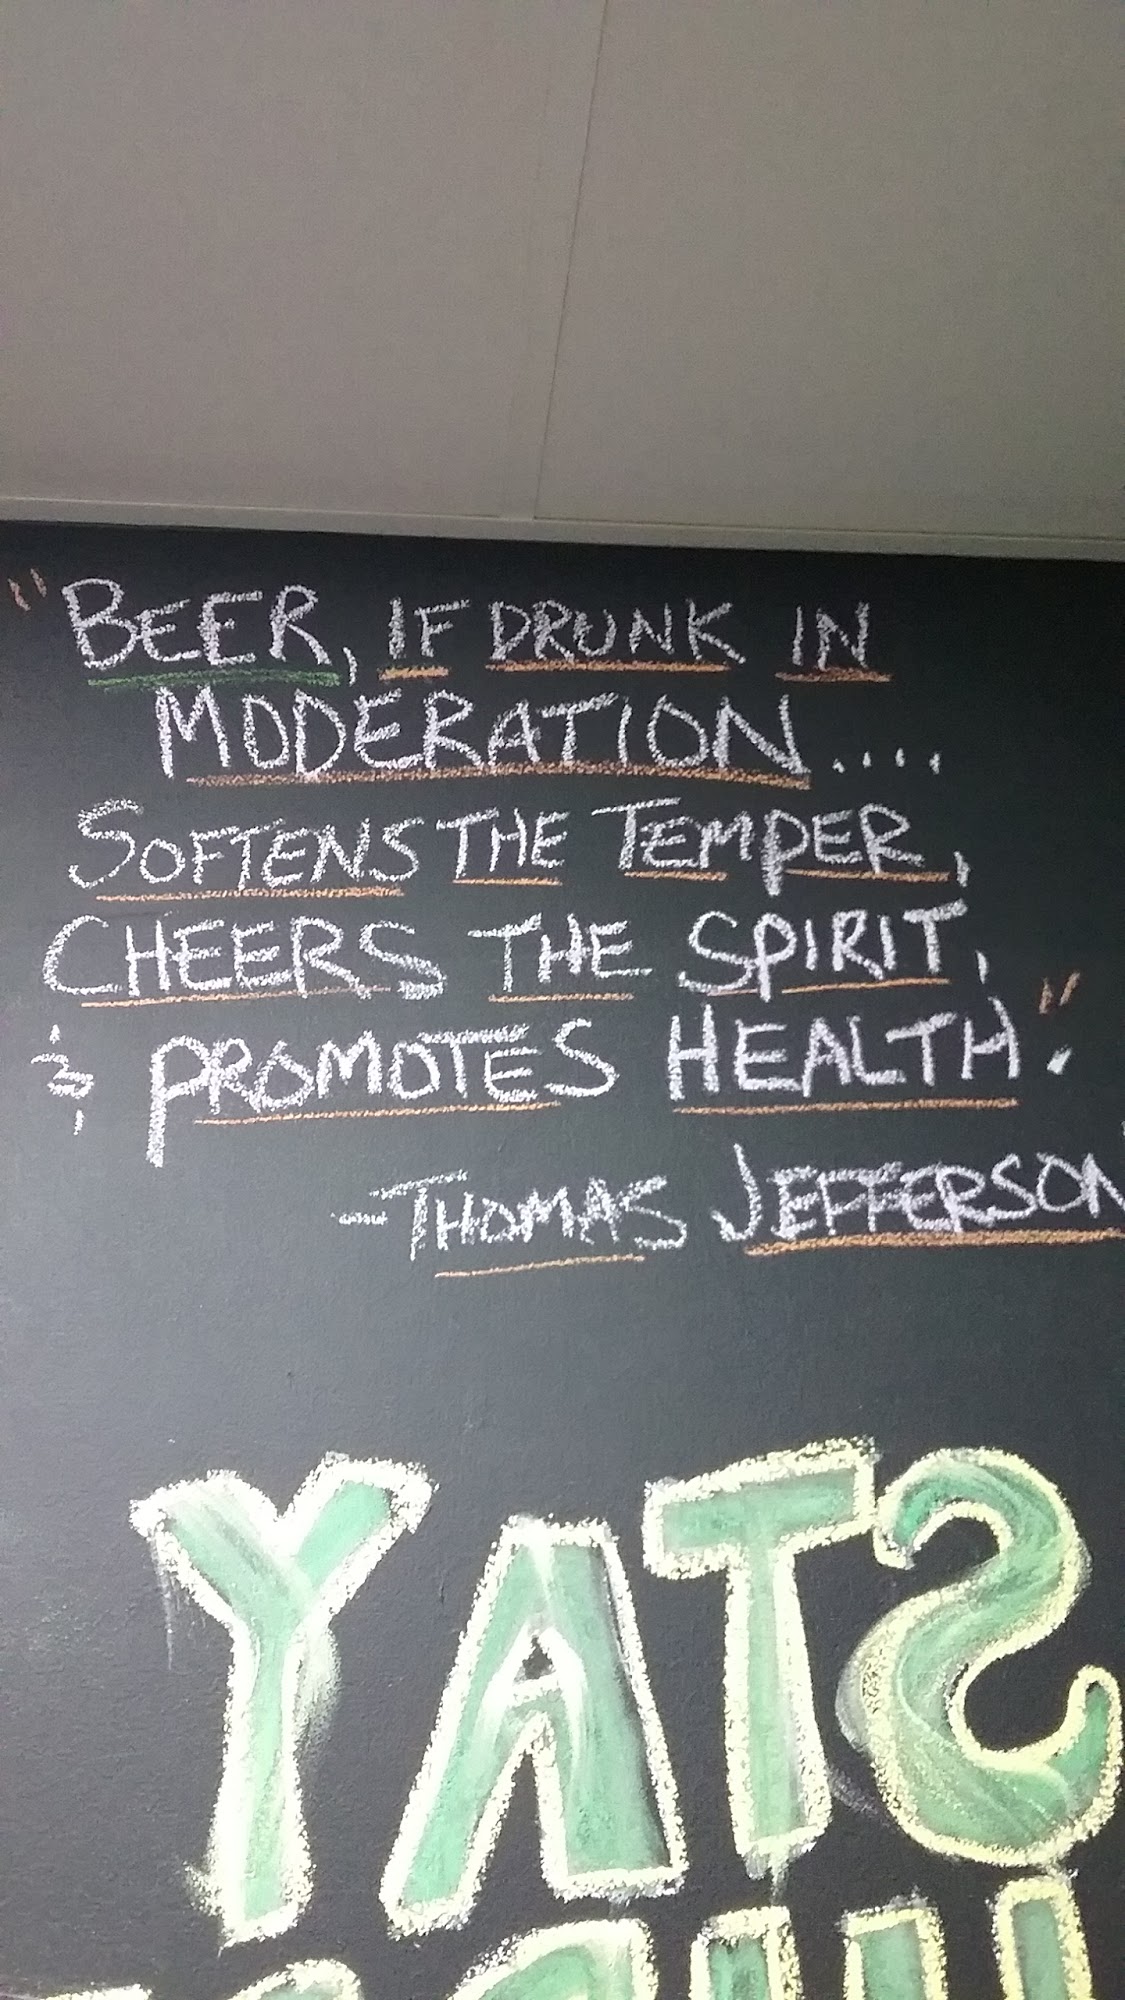 "BEER, IF DRUNK IN
MODERATION....
SOFTENS THE TEMPER,
CHEERS THE SPIRIT,
& PROMOTES HEALTH."
- THOMAS JEFFERSON
YATS